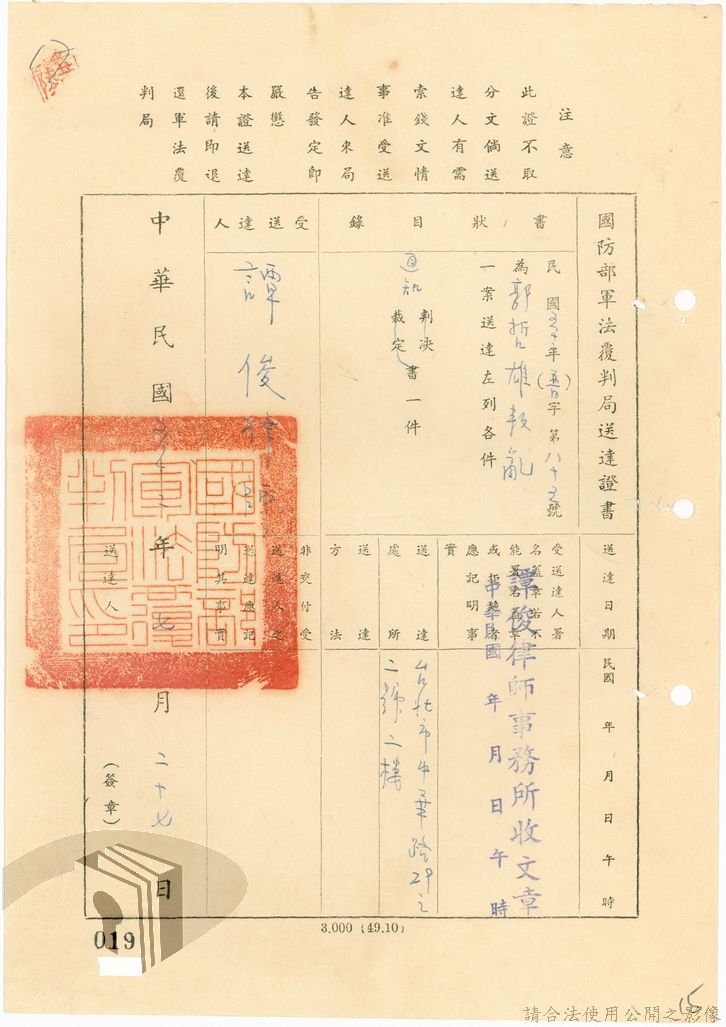 注意
此證不取
分文倘送
達人有需
索錢文情
事准受送
達人來局
告發定卽
嚴懲
本證送達
後請卽退
還軍法覆
判局
國防部軍法覆判局送達證書
書狀目錄
民國五十年(普)字第八十五號
為郭哲雄叛亂
一案送達左列各件
通知
判決
裁定
書一件
受送達人
譚俊律師
送達日期
民國 年 月 日 午 時
受送達人署
名蓋章若不
能署名蓋章
或拒絕者
應記明事
實
譚俊律師事務所收文章
中華民國 年 月 日 午 時
送達處所
台北市中華路29之
二號二樓
送達方法
非交付受
送達人之
送達應記
明其事實
中華民國五十二年七月二十七日
送達人
(簽章)
國防部
軍法覆
判局印
3,000 (49.10)
019
15
請合法使用公開之影像